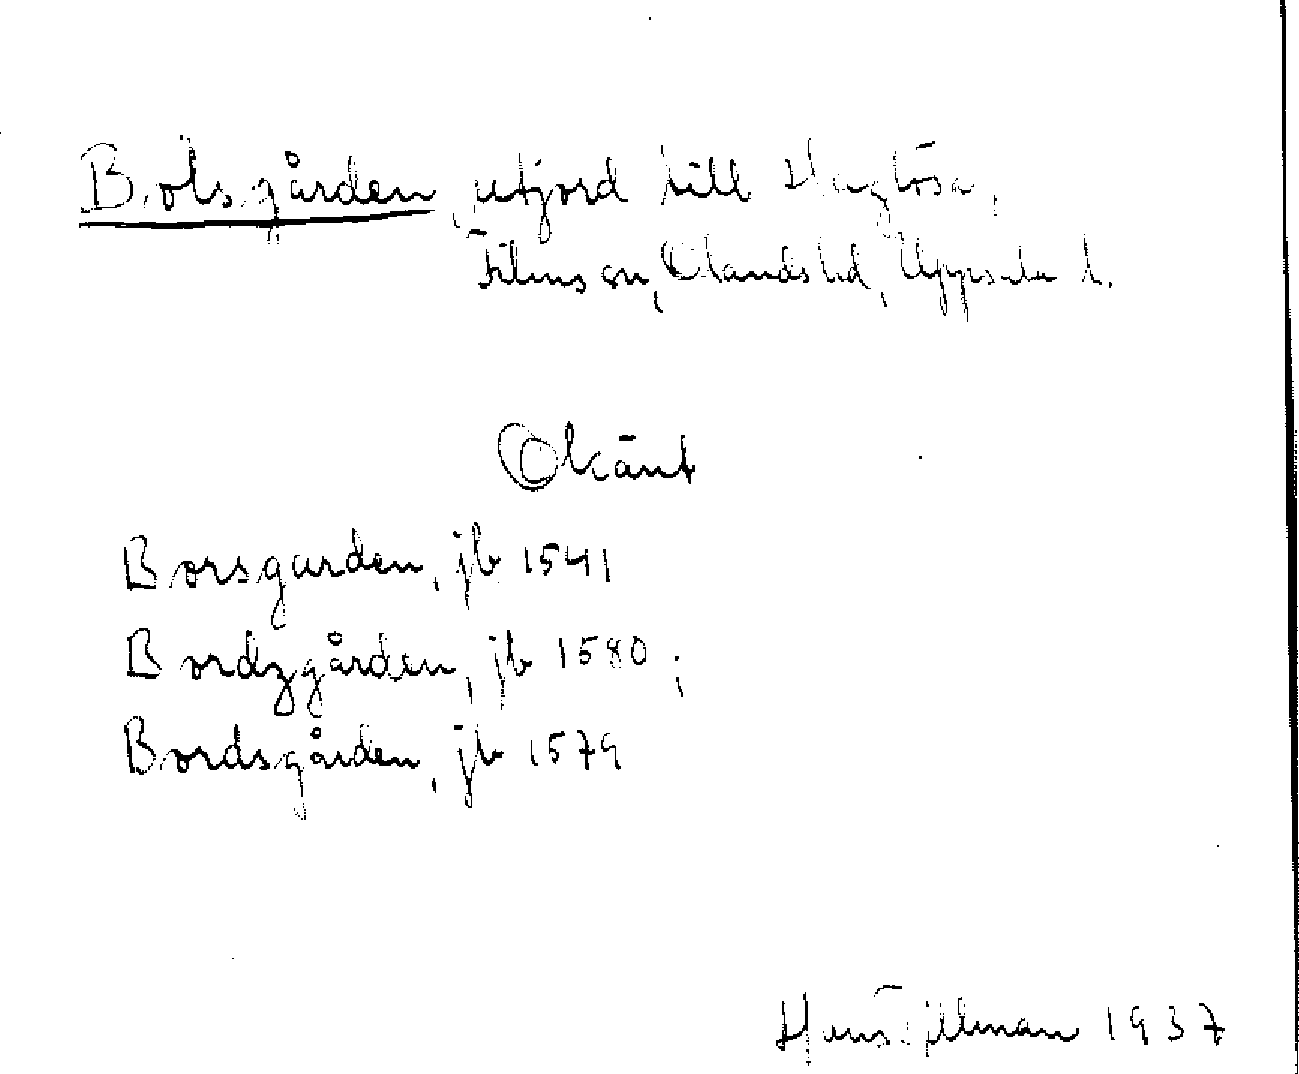 Bolsgården, utjord till Haglösa,
Films sn, Olands hd, Uppsala l.
Okänt
Borsgarden, jb 1541
Bordzgården, jb 1580;
Bordsgården, jb 1579
Hans Tillman 1937